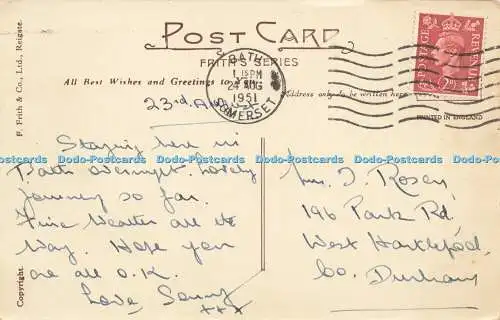 POST CARD
FRITH'S SERIES
All Best Wishes and Greetings to You
Address only to be written here
PRINTED IN ENGLAND
F. Frith & Co., Ltd., Reigate.
Copyright.
BATH
1 15 PM
24 AUG
1951
SOMERSET
POSTAGE
REVENUE
23rd
Staying here in
Bath overnight. Lovely
journey so far.
Fine Weather all the
Way. Hope you
are all O.K.
Love Sonny
xxx
Mrs. J. Rosen,
196 Park Rd.
West Hartlepool,
Co. Durham
Dodo-Postcards Dodo-Postcards Dodo-Postcards Dodo-Postcards Dodo-Postcards Dodo-Postcards